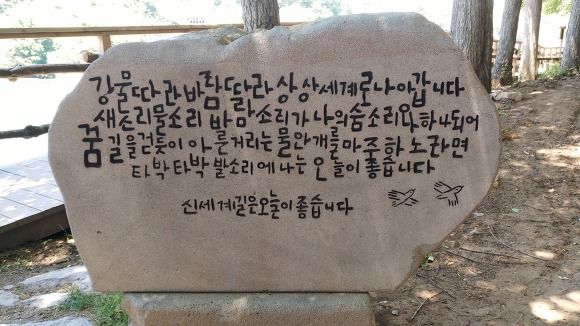 강물따라바람따라상상세계로나아갑니다
새소리물소리 바람소리가 나의숨소리와하나되어
꿈길을걷듯이 아른거리는 물안개를마주하노라면
타박타박 발소리에 나는 오늘이 좋습니다
신세계길은오늘이좋습니다